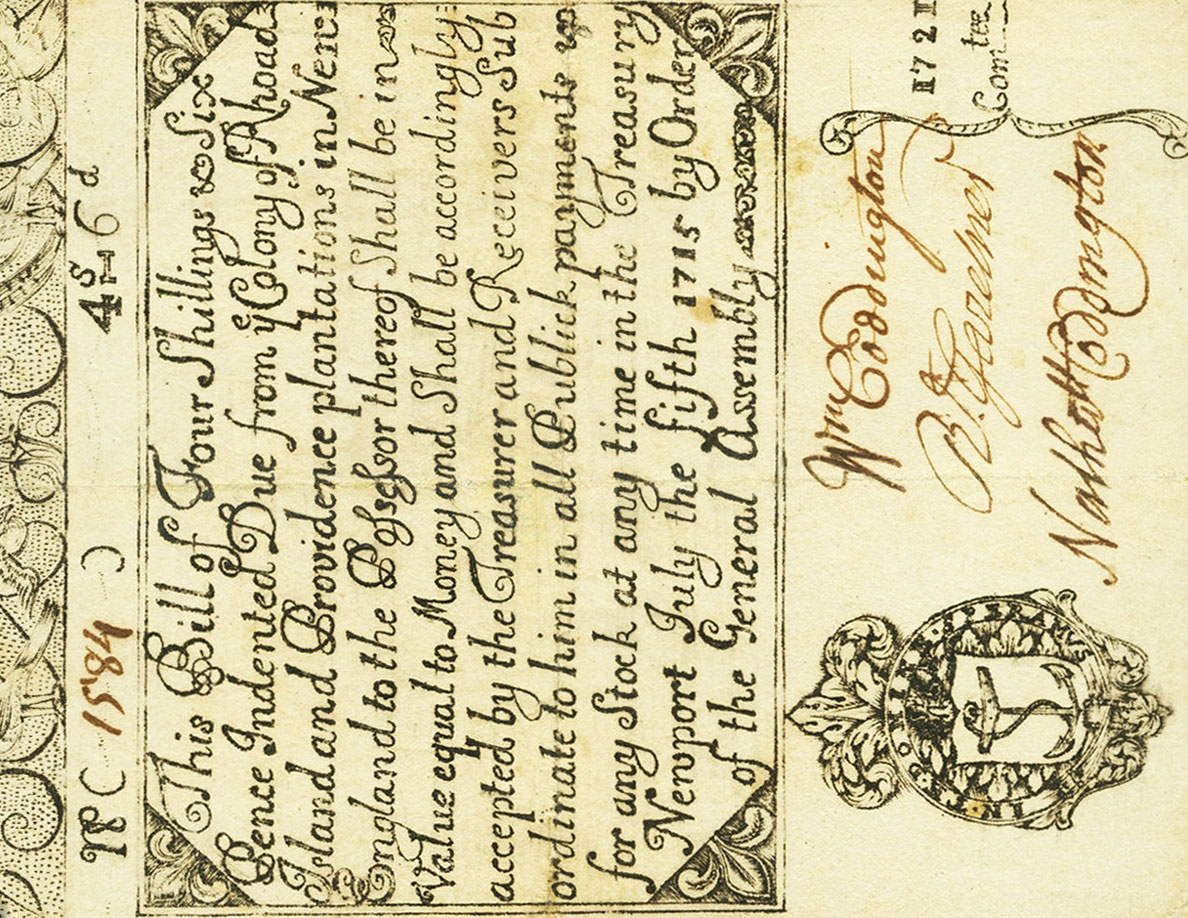 No ( 1584 ) 4s 6d
This Bill of Four Shillings & Six
Pence Indented Due from ye Colony of Rhoad
Island and Providence plantations in New
England to the Possessor thereof Shall be in
Value equal to Money and Shall be accordingly
accepted by the Treasurer and Receivers Sub
ordinate to him in all Publick payments &
for any Stock at any time in the Treasury
Newport July the fifth 1715 by Order
of the General Assembly
Wm Coddington
Nathll Coddington
1721
Comtee